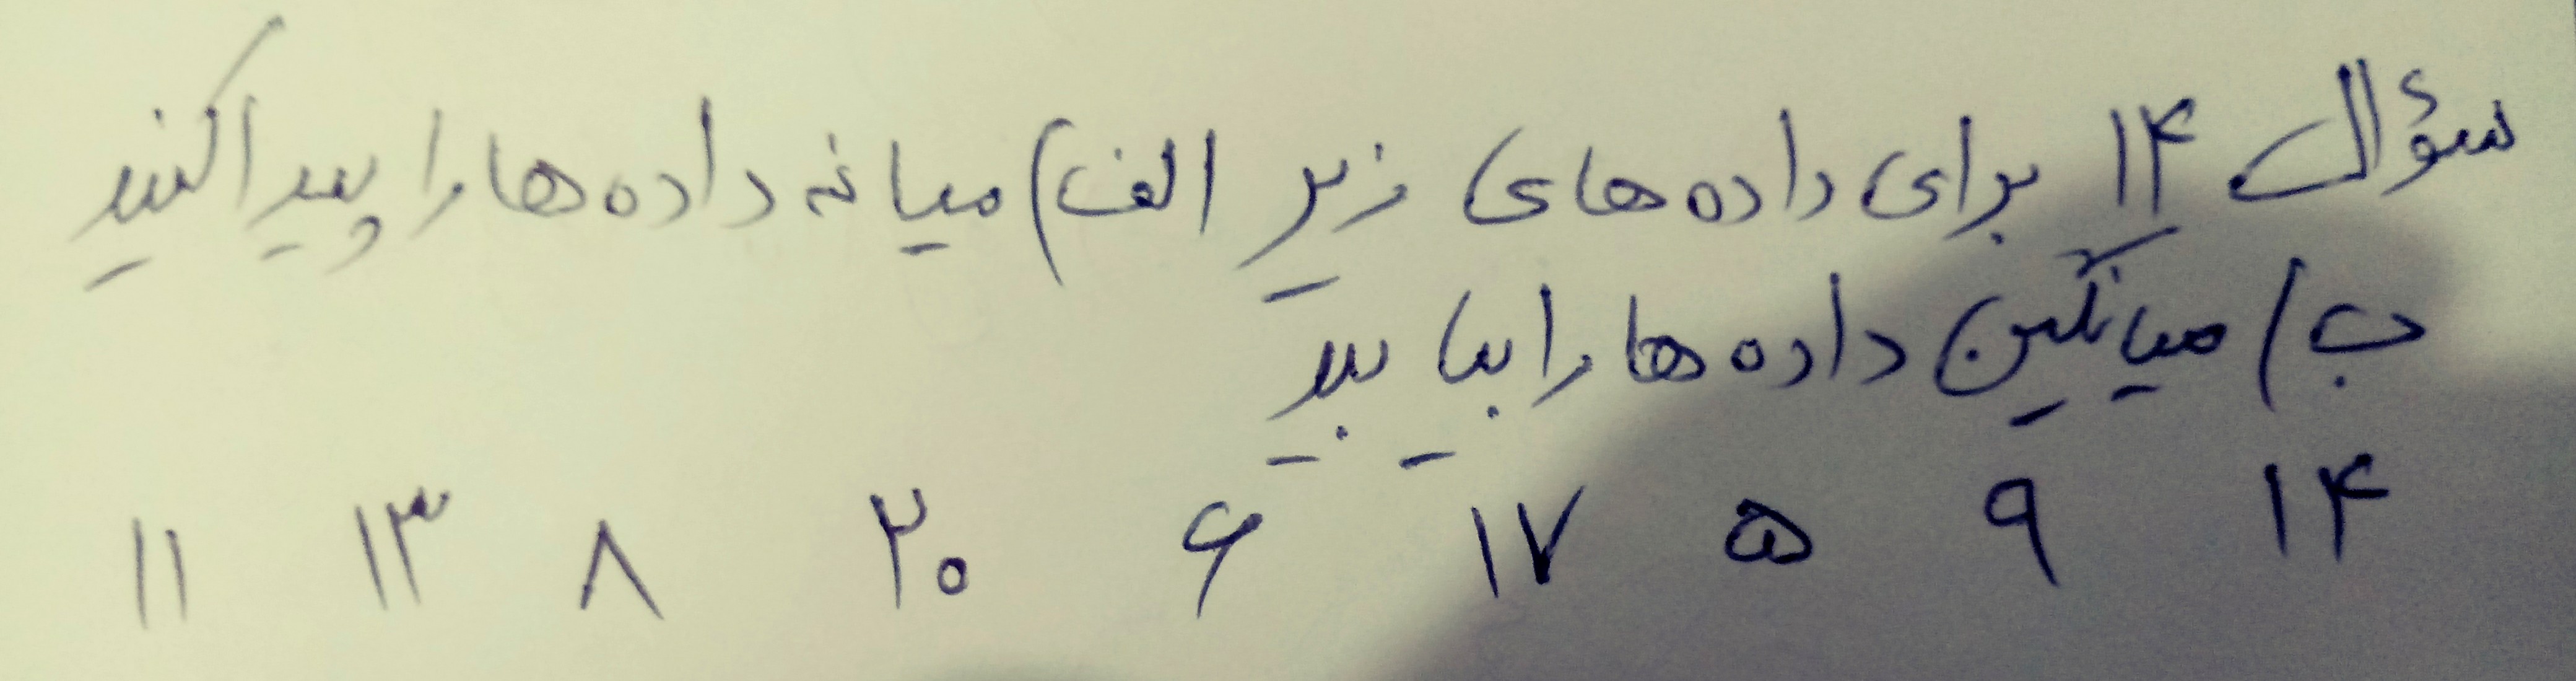 سؤال ۱۴ برای داده های زیر الف) میانه داده ها را پیدا کنید
ب) میانگین داده ها را بیابید
۱۴ ۹ ۵ ۱۷ ۶ ۲۰ ۸ ۱۳ ۱۱